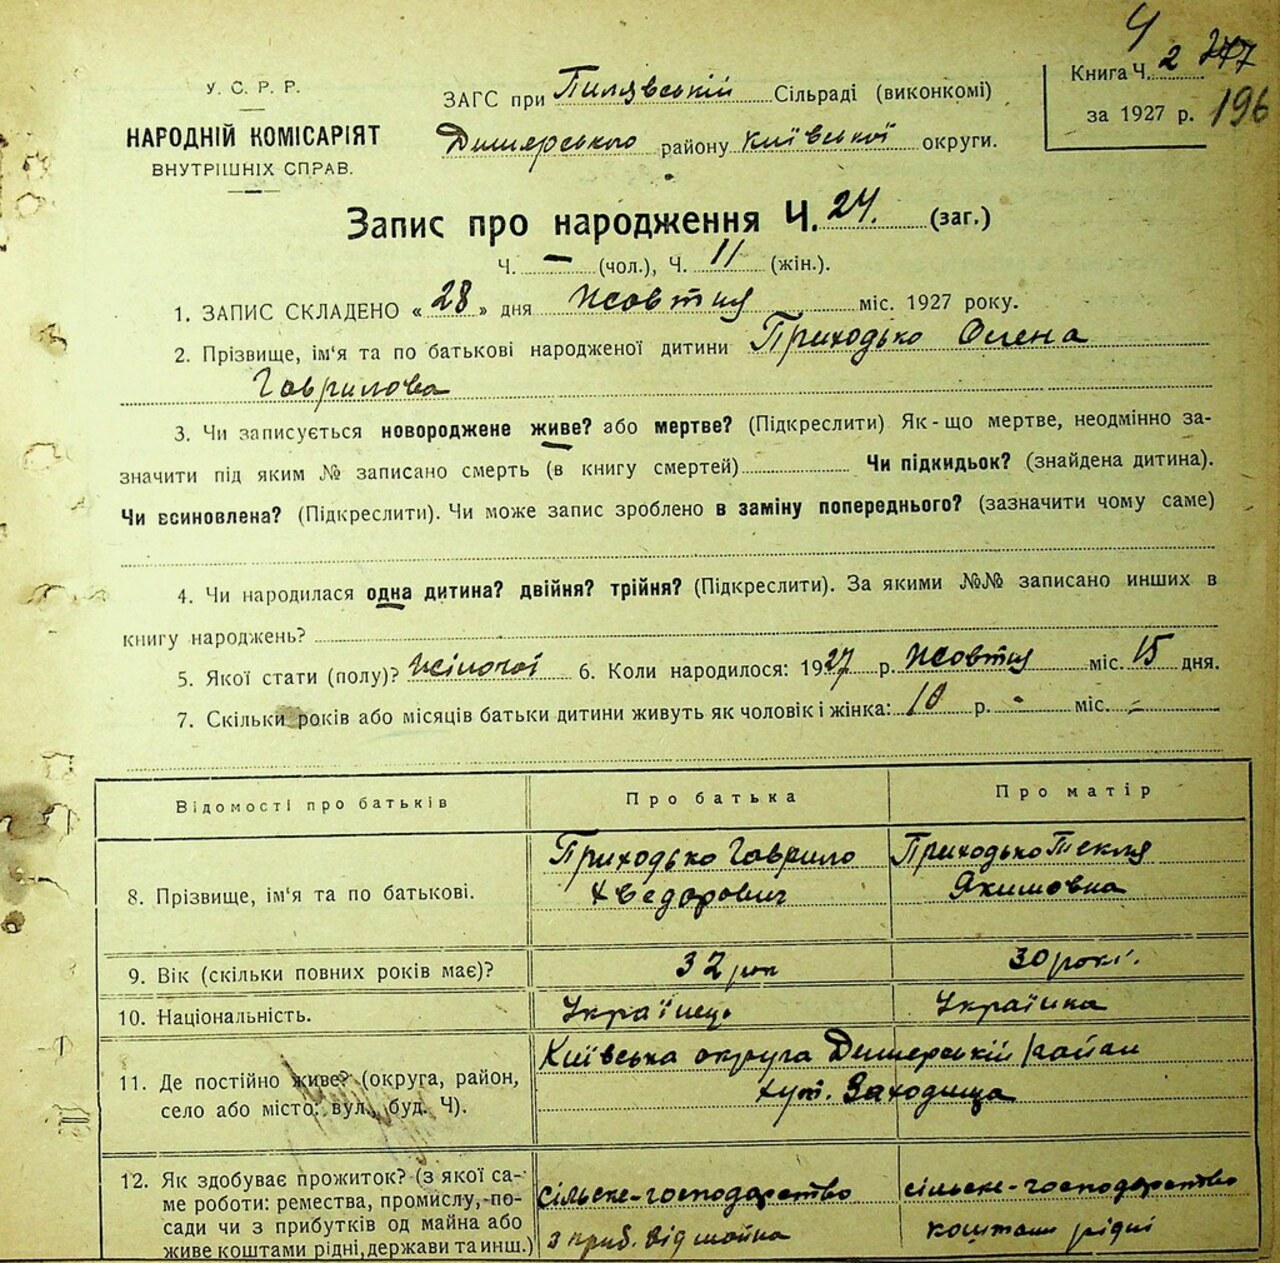 Ч
У. С. Р. Р.
НАРОДНІЙ КОМІСАРІЯТ
ВНУТРІШНІХ СПРАВ.
ЗАГС при Пилявській Сільраді (виконкомі)
Димерського району Київської округи.
Книга Ч. 2 277
за 1927 р. 196
Запис про народження Ч. 24. (заг.)
Ч. — (чол.), Ч. 11 (жін.).
1. ЗАПИС СКЛАДЕНО « 28 » дня Жовтня міс. 1927 року.
2. Прізвище, ім'я та по батькові народженої дитини Приходько Олена
Гаврилова
3. Чи записується новороджене живе? або мертве? (Підкреслити) Як-що мертве, неодмінно за-
значити під яким № записано смерть (в книгу смертей) Чи підкидьок? (знайдена дитина).
Чи всиновлена? (Підкреслити). Чи може запис зроблено в заміну попереднього? (зазначити чому саме)
4. Чи народилася одна дитина? двійня? трійня? (Підкреслити). За якими №№ записано инших в
книгу народжень?
5. Якої стати (полу)? жіночої 6. Коли народилося: 1927 р. Жовтня міс. 15 дня.
7. Скільки років або місяців батьки дитини живуть як чоловік і жінка: 10 р. - міс. -
Відомості про батьків Про батька Про матір
8. Прізвище, ім'я та по батькові. Приходько Гаврило Приходько Текля
Хведорович Якимовна
9. Вік (скільки повних років має)? 32 рок 30 рокі.
10. Національність. Українець Українка
11. Де постійно живе? (округа, район,
село або місто: вул., буд. Ч). Київська округа Димерській район
хут. Заходища
12. Як здобуває прожиток? (з якої са-
ме роботи: ремества, промислу, по-
сади чи з прибутків од майна або
живе коштами рідні, держави та инш.)
сільске-господарство сільске-господарство
з приб. від майна коштами рідні